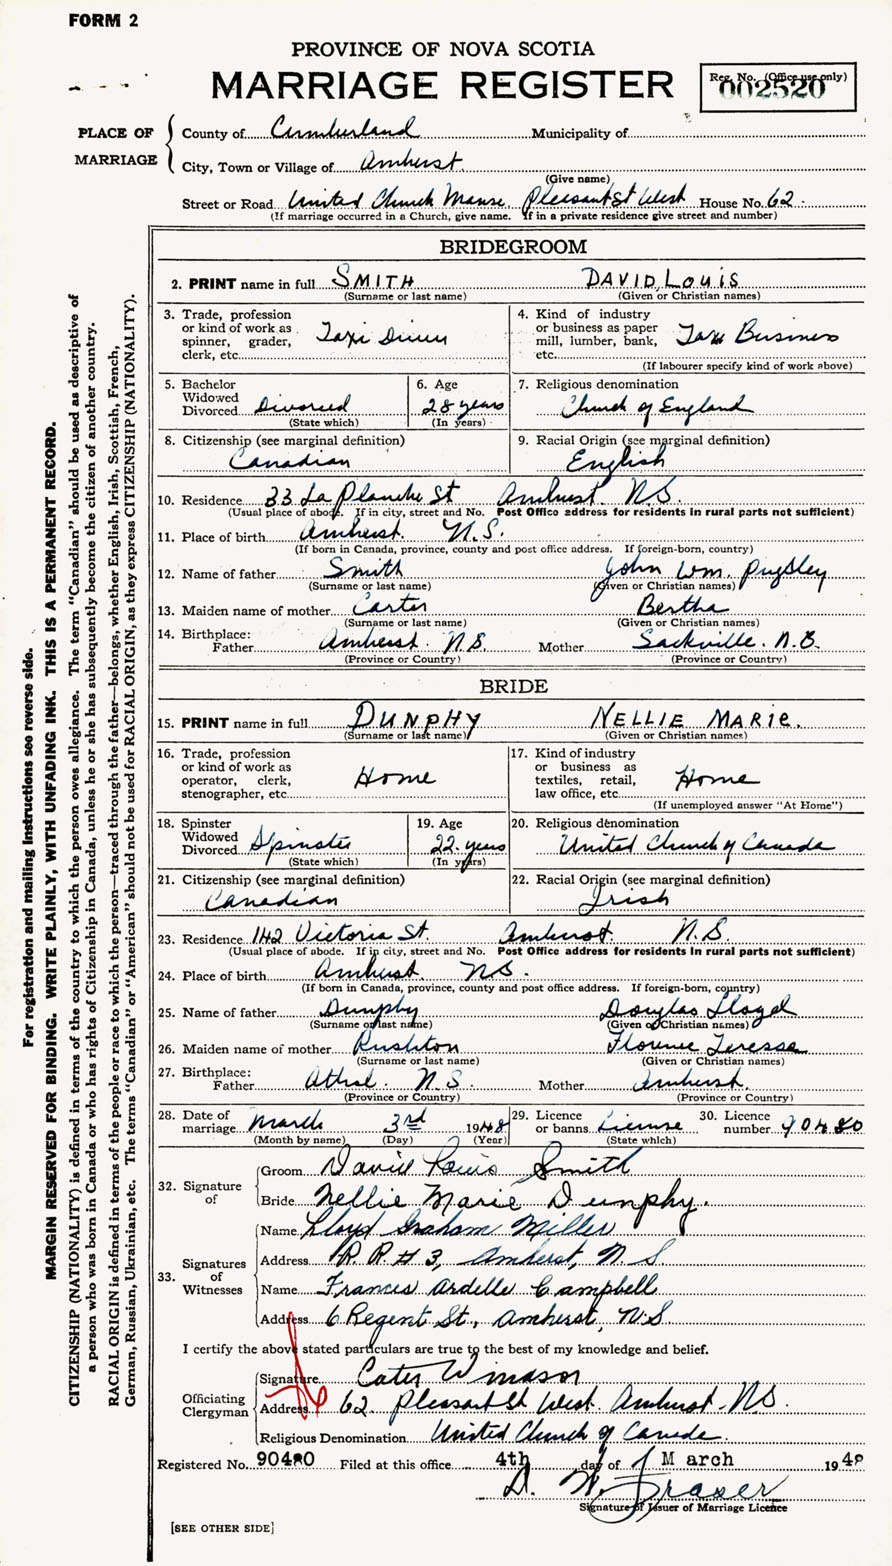 FORM 2
PROVINCE OF NOVA SCOTIA
MARRIAGE REGISTER
Reg. No. (Office use only)
002520
PLACE OF MARRIAGE
County of Cumberland Municipality of
City, Town or Village of Amherst
(Give name)
Street or Road United Church Manse, Pleasant St West House No. 62.
(If marriage occurred in a Church, give name. If in a private residence give street and number)
BRIDEGROOM
2. PRINT name in full SMITH DAVID LOUIS
(Surname or last name) (Given or Christian names)
3. Trade, profession or kind of work as spinner, grader, clerk, etc. Taxi Driver
4. Kind of industry or business as paper mill, lumber, bank, etc. Taxi Business
(If labourer specify kind of work above)
5. Bachelor Widowed Divorced Divorced
(State which)
6. Age 28 years
(In years)
7. Religious denomination Church of England
8. Citizenship (see marginal definition) Canadian
9. Racial Origin (see marginal definition) English
10. Residence 33 La Planche St Amherst. N.S.
(Usual place of abode. If in city, street and No. Post Office address for residents in rural parts not sufficient)
11. Place of birth Amherst. N.S.
(If born in Canada, province, county and post office address. If foreign-born, country)
12. Name of father Smith John Wm. Pugsley
(Surname or last name) (Given or Christian names)
13. Maiden name of mother Carter Bertha
(Surname or last name) (Given or Christian names)
14. Birthplace: Father Amherst. N.S. Mother Sackville. N.B.
(Province or Country) (Province or Country)
BRIDE
15. PRINT name in full DUNPHY NELLIE MARIE.
(Surname or last name) (Given or Christian names)
16. Trade, profession or kind of work as operator, clerk, stenographer, etc. Home
17. Kind of industry or business as textiles, retail, law office, etc. Home
(If unemployed answer "At Home")
18. Spinster Widowed Divorced Spinster
(State which)
19. Age 22 years
(In years)
20. Religious denomination United Church of Canada
21. Citizenship (see marginal definition) Canadian
22. Racial Origin (see marginal definition) Irish
23. Residence 142 Victoria St. Amherst N.S.
(Usual place of abode. If in city, street and No. Post Office address for residents in rural parts not sufficient)
24. Place of birth Amherst. N.S.
(If born in Canada, province, county and post office address. If foreign-born, country)
25. Name of father Dunphy Douglas Lloyd
(Surname or last name) (Given or Christian names)
26. Maiden name of mother Rushton Florence Teressa
(Surname or last name) (Given or Christian names)
27. Birthplace: Father Athol. N.S. Mother Amherst.
(Province or Country) (Province or Country)
28. Date of marriage March 3rd 1948
(Month by name) (Day) (Year)
29. Licence or banns License
(State which)
30. Licence number 90480
32. Signature of
Groom David Louis Smith
Bride Nellie Marie Dunphy.
33. Signatures of Witnesses
Name Lloyd Graham Miller
Address R.R. #3, Amherst, N.S.
Name Frances Ardelle Campbell
Address 6 Regent St., Amherst, N.S
I certify the above stated particulars are true to the best of my knowledge and belief.
Officiating Clergyman
Signature
Address 62 Pleasant St West. Amherst. N.S.
Religious Denomination United Church of Canada.
Registered No. 90480 Filed at this office 4th day of March 1948
D. W. Fraser
Signature of Issuer of Marriage Licence
[SEE OTHER SIDE]
For registration and mailing instructions see reverse side.
MARGIN RESERVED FOR BINDING. WRITE PLAINLY, WITH UNFADING INK. THIS IS A PERMANENT RECORD.
CITIZENSHIP (NATIONALITY) is defined in terms of the country to which the person owes allegiance. The term "Canadian" should be used as descriptive of
a person who was born in Canada or who has rights of Citizenship in Canada, unless he or she has subsequently become the citizen of another country.
RACIAL ORIGIN is defined in terms of the people or race to which the person—traced through the father—belongs, whether English, Irish, Scottish, French,
German, Russian, Ukrainian, etc. The terms "Canadian" or "American" should not be used for RACIAL ORIGIN, as they express CITIZENSHIP (NATIONALITY).